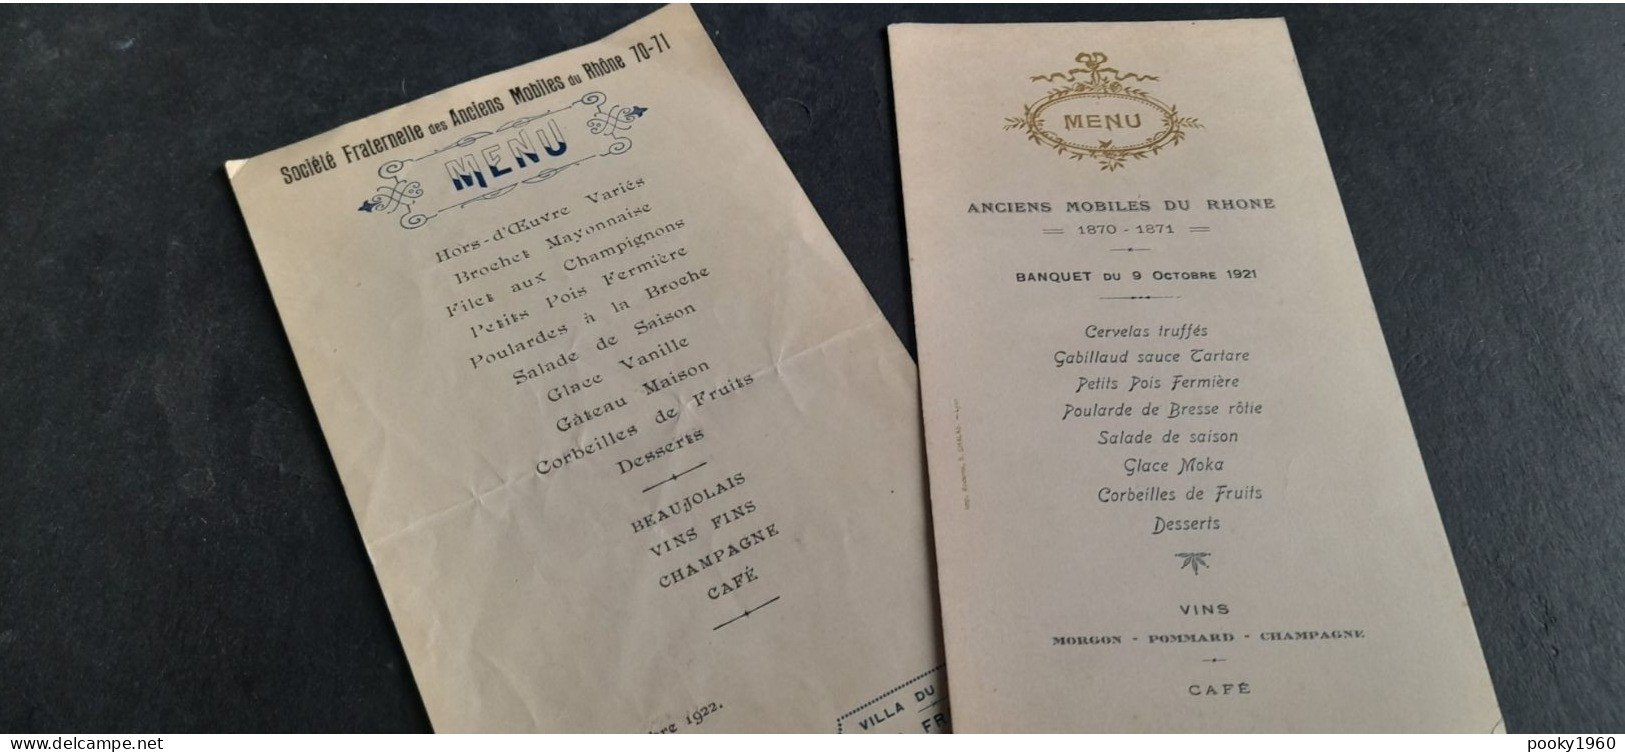 Société Fraternelle des Anciens Mobiles du Rhône 70-71
MENU
Hors-d'Œuvre Variés
Brochet Mayonnaise
Filet aux Champignons
Petits Pois Fermière
Poulardes à la Broche
Salade de Saison
Glace Vanille
Gâteau Maison
Corbeilles de Fruits
Desserts
BEAUJOLAIS
VINS FINS
CHAMPAGNE
CAFÉ
bre 1922.
VILLA DU
FR
MENU
ANCIENS MOBILES DU RHONE
1870 - 1871
BANQUET DU 9 OCTOBRE 1921
Cervelas truffés
Gabillaud sauce Tartare
Petits Pois Fermière
Poularde de Bresse rôtie
Salade de saison
Glace Moka
Corbeilles de Fruits
Desserts
VINS
MORGON - POMMARD - CHAMPAGNE
CAFÉ
delcampe.net
pooky1960